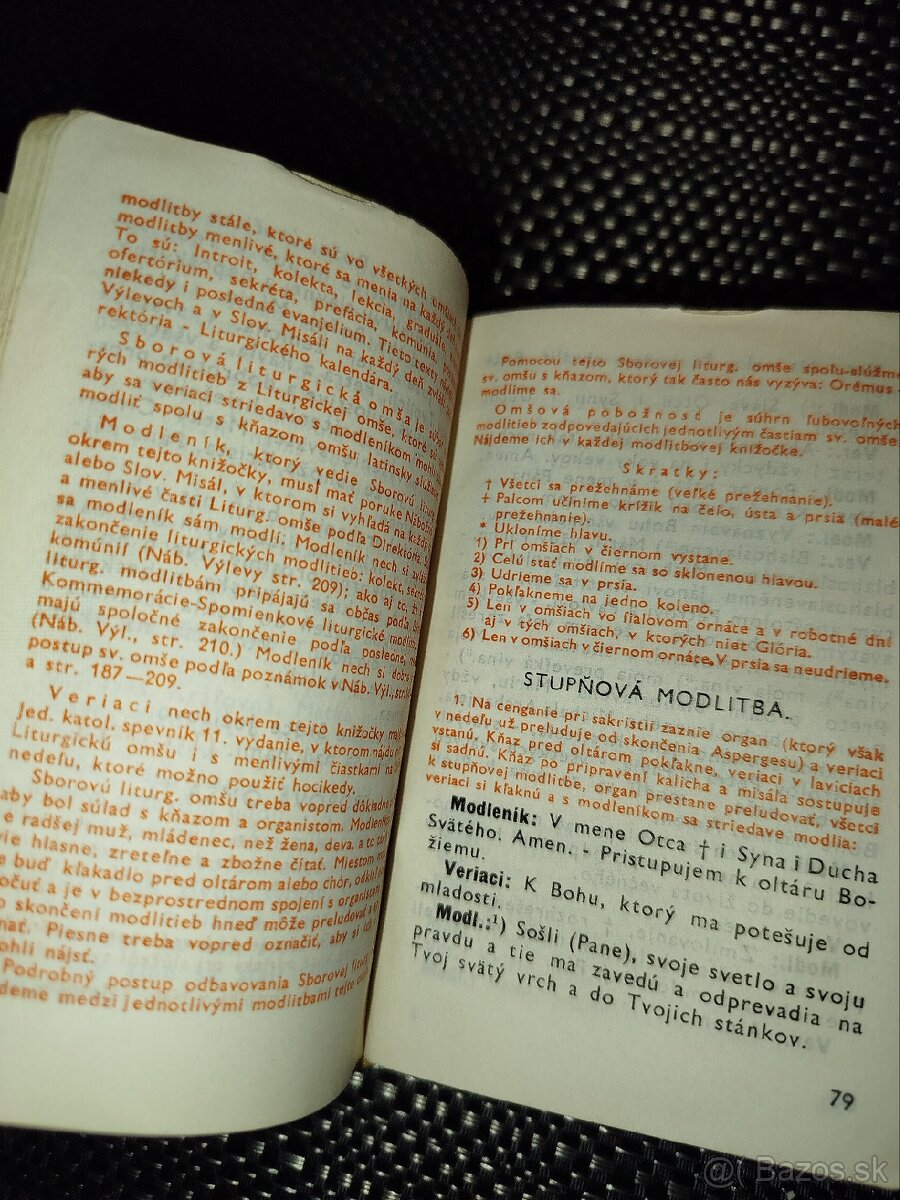 modlitby stále, ktoré sú vo všetkých
modlitby menlivé, ktoré sa menia na každý
To sú: Introit, kolekta, lekcia, graduále,
ofertórium, sekréta, prefácia, komúnia,
niekedy i posledné evanjelium. Tieto texty
Výlevoch a v Slov. Misáli na každý deň
rektória - Liturgického kalendára.
Sborová liturgická omša je
rých modlitieb z Liturgickej omše, ktoré
aby sa veriaci striedavo s modleníkom mohli
modliť spolu s kňazom omšu latinsky
Modleník, ktorý vedie Sborovú
okrem tejto knižočky, musí mať poruke
alebo Slov. Misál, v ktorom si vyhľadá na každý
a menlivé časti Liturg. omše podľa
sa modleník sám modlí. Modleník nech si
zakončenie liturgických modlitieb: kolekt,
komúnií (Náb. Výlevy str. 209); ako aj to,
liturg. modlitbám pripájajú sa občas podľa
Kommemorácie-Spomienkové liturgické
majú spoločné zakončenie podľa poslednej,
(Náb. Výl., str. 210.) Modleník nech si
postup sv. omše podľa poznámok v Náb. Výl.,
a str. 187—209.
Veriaci nech okrem tejto knižočky
Jed. katol. spevník 11. vydanie, v ktorom nájdu
Liturgickú omšu i s menlivými čiastkami na
nedeľu, ktoré možno použiť hocikedy.
Sborovú liturg. omšu treba vopred dôkladne
aby bol súlad s kňazom a organistom.
e radšej muž, mládenec, než žena, deva, a to
vie hlasne, zreteľne a zbožne čítať. Miestom
e buď kľakadlo pred oltárom alebo chór,
očuť a je v bezprostrednom spojení s organistom
o skončení modlitieb hneď môže preludovať
nať. Piesne treba vopred označiť, aby si ich
ohli nájsť.
Podrobný postup odbavovania Sborovej
deme medzi jednotlivými modlitbami tejto
Pomocou tejto Sborovej liturg. omše spolu-slúžme
sv. omšu s kňazom, ktorý tak často nás vyzýva: Orémus
modlime sa.
Omšová pobožnosť je súhrn ľubovoľných
modlitieb zodpovedajúcich jednotlivým častiam sv. omše
Nájdeme ich v každej modlitbovej knižočke.
Skratky:
† Všetci sa prežehnáme (veľké prežehnanie).
+ Palcom učiníme krížik na čelo, ústa a prsia (malé
prežehnanie).
* Ukloníme hlavu.
1) Pri omšiach v čiernom vystane.
2) Celú stať modlíme sa so sklonenou hlavou.
3) Udrieme sa v prsia.
4) Pokľakneme na jedno koleno.
5) Len v omšiach vo fialovom ornáte a v robotné dni
aj v tých omšiach, v ktorých niet Glória.
6) Len v omšiach v čiernom ornáte. V prsia sa neudrieme.
STUPŇOVÁ MODLITBA.
1. Na cenganie pri sakristii zaznie organ (ktorý však
v nedeľu už preluduje od skončenia Aspergesu) a veriaci
vstanú. Kňaz pred oltárom pokľakne, veriaci v laviciach
si sadnú. Kňaz po pripravení kalicha a misála sostupuje
k stupňovej modlitbe, organ prestane preludovať, všetci
veriaci si kľaknú a s modleníkom sa striedave modlia:
Modleník: V mene Otca † i Syna i Ducha
Svätého. Amen. - Pristupujem k oltáru Bo-
žiemu.
Veriaci: K Bohu, ktorý ma potešuje od
mladosti.
Modl.:¹) Sošli (Pane), svoje svetlo a svoju
pravdu a tie ma zavedú a odprevadia na
Tvoj svätý vrch a do Tvojich stánkov.
79
@ Bazos.sk